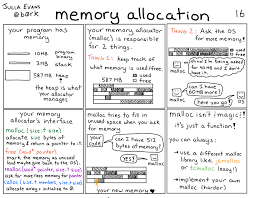 JULIA EVANS
@b0rk
memory allocation
16
your program has
memory
10MB
program
binary
3MB
stack
587 MB
heap
the heap is what
your allocator
manages
your memory allocator
(malloc) is responsible
for 2 things.
THING 1: keep track of
what memory is used/free
587 MB
used
free
THING 2: Ask the OS
for more memory!
malloc
can I have
here you go!
your memory
allocator's interface
malloc (size_t size)
allocate size bytes of
memory & return a pointer to it
free (void* pointer)
mark the memory as unused
(and maybe give back to the OS)
realloc (void* pointer, size_t size)
ask for more/less memory for pointer
calloc (size_t members, size_t size)
allocate array + initialize to 0
malloc tries to fill in
unused space when you
ask for memory
your
code
can I have 512
bytes of memory?
yes!
malloc
your new memory
malloc isn't magic!
it's just a function!
you can always:
→ use a different malloc
library like jemalloc
or tcmalloc (easy!)
→ implement your own
malloc (harder)